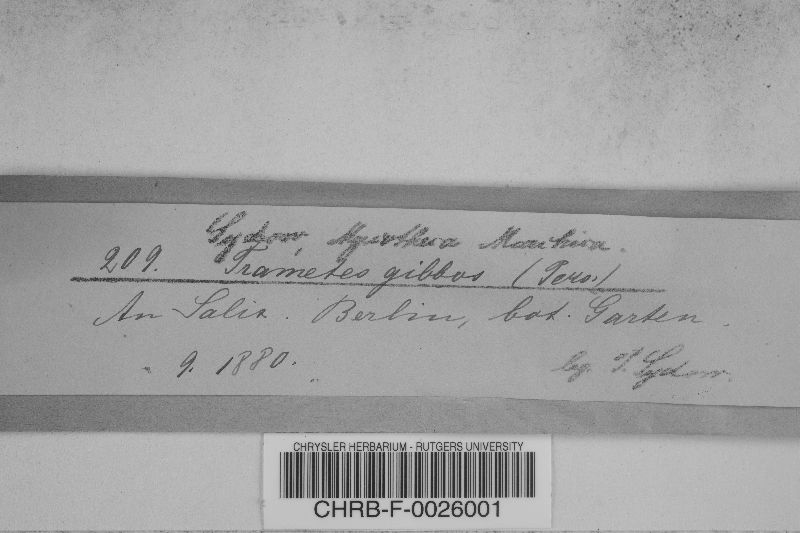 Sydow, Mycotheca Marchica.
209. Trametes gibbos (Pers.)
An Salix. Berlin, bot. Garten.
9. 1880.
leg. P. Sydow.
CHRYSLER HERBARIUM - RUTGERS UNIVERSITY
CHRB-F-0026001